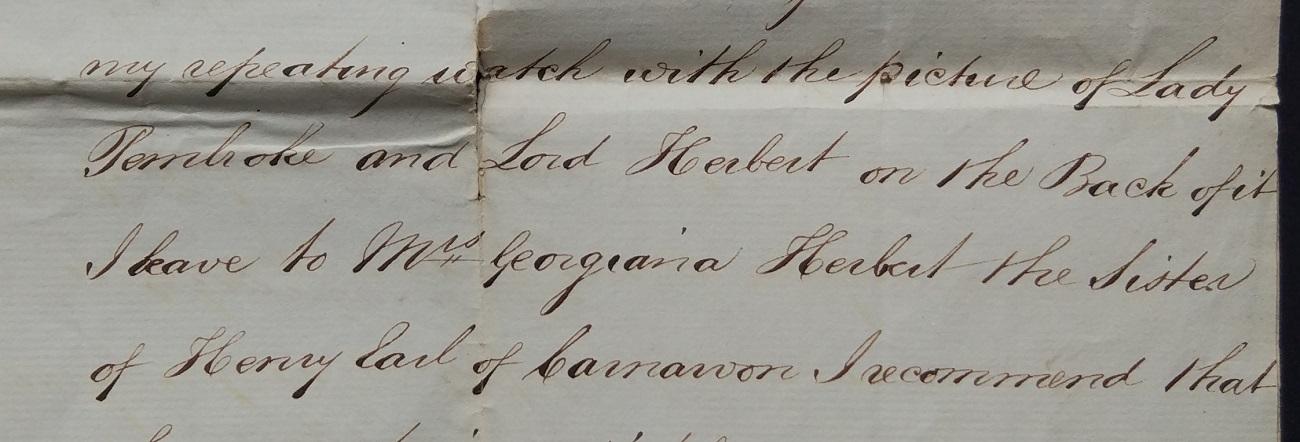 my repeating watch with the picture of Lady
Pembroke and Lord Herbert on the Back of it
I leave to Mrs Georgiana Herbert the Sister
of Henry Earl of Carnarvon I recommend that